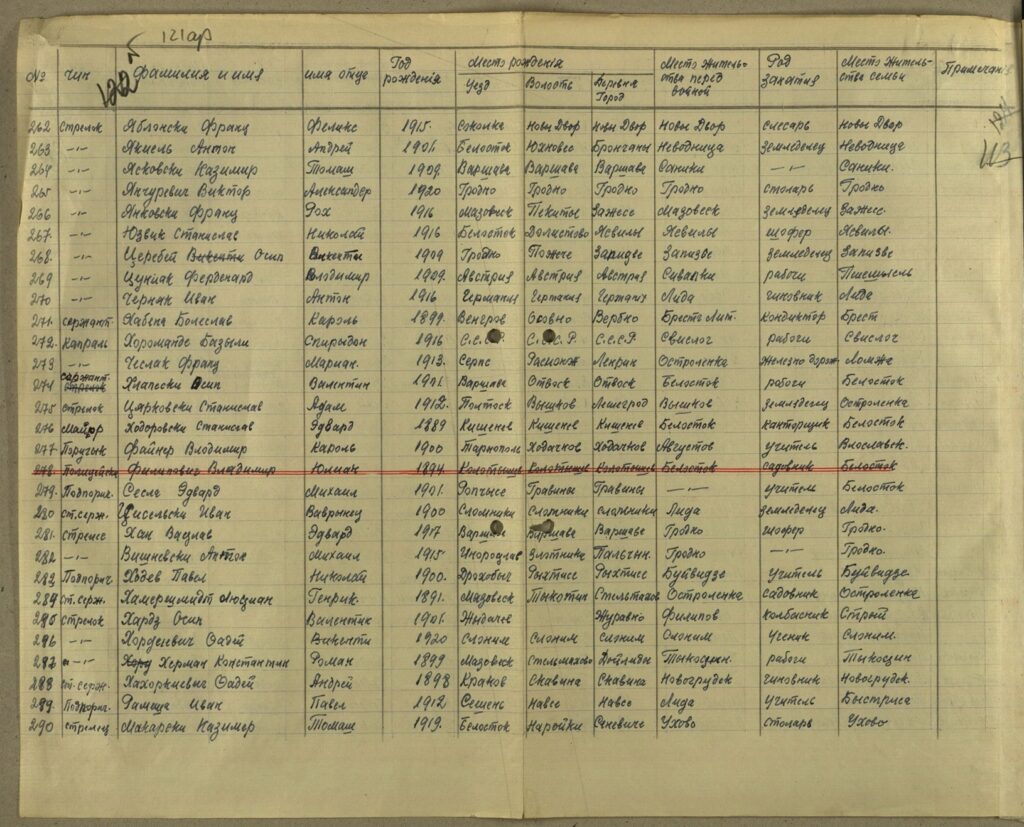 121ар
122
№ чин Фамилия и имя имя отца Год рождения Место рождения Место Житель-ства перед войной Род занятия Место Житель-ства семьи Примечания
Уезд Волость Деревня Город
113
262 стрелок Яблонски Франц Феликс 1915. Соколка Новы Двор Новы Двор Новы Двор слесарь Новы Двор
263 -"- Якиель Антон Андрей 1901. Белосток Юхновес Брончаны Неводница земледелец Неводница
264 -"- Ясковски Казимир Томаш 1909. Варшава Варшава Варшаве Саники -"- Саники.
265 -"- Янчуревич Виктор Александер 1920 Гродно Гродно Гродно Гродно столарь Гродно
266 -"- Янковски Франц Рох 1916 Мазовеск Пекиты Зажесе Мазовеск земледелец Зажесе.
267. -"- Юзвик Станислав Николай 1916 Белосток Долистово Ясвилы Ясвилы шофер Ясвилы.
268. -"- Церебей Осип 1909 Гродно земледелец
269 -"- Фердинанд Володимир 1909. Австрия Австрия Австрия рабочи Пшемысль
270 -"- Черняк Иван Антон 1916 Германия Германия Германия Лида чиновник Лида
271. сержант. Хабепа Болеслав Кароль 1899. Венгров Осовно Вербно Брест Лит. кондиктор Брест
272. Капраль Хоромане Базыли Спирыдон 1916 С.С.С.Р С.С.С.Р. С.С.С.Р Свислоч рабочи Свислоч
273 -"- Чеслак Франц Мариан. 1913. Серпс Ленрин Остроленка Железно дорож. Ломжа
274 сержант. стрелок Хлапески Осип Валентин 1901. Варшаве Отвоск Отвоск Белосток рабочи Белосток
275 стрелок Цярковски Станислав Адам 1912. Вышков Вышков земледелец Остроленка
276 Майор Ходоровски Станислав Эдвард 1889 Кишенев Кишенев Кишенев Белосток канторщик Белосток
277 Поручык Файнер Владимир Кароль 1900 Тарнополь Ходачков Ходачков Августов учитель Вислославск.
278. Филипович Владимир Юлиан 1894 Колотыще Колотыще Колотыще Белосток садовник Белосток
279. Подпорич. Сесля Эдвард Михаил 1901. Травины Травины -"- учитель Белосток
280 ст.серж. Цисельски Иван Вавржнец 1900 Сломники Сломники сламники Лида земледелец Лида.
281. Хан Вацлав Эдвард 1917 Варшава Варшаве Варшаве Гродно шофер Гродно.
282 -"- Вишневски Антон Михаил 1915 Злотники Пальчин. Гродно -"- Гродно.
283 Подпорич Ходев Павел Николай 1900. Дрохобыч Рыхтисе Рыхтисе Буйвидзе учитель Буйвидзе
284 ст.серж. Хамершмидт Люциан Генрик. 1891. Мазовеск Тыкотин Стельмахово Остроленка садовник Остроленка
285 стрелок Хардз Осип Валентин 1901. Жыдачев Журавно Филипов колбасник Стрый
286 -"- Хорденевич Фадей Викенти 1920 Слоним Слоним Слоним Слоним Ученик Слоним.
287 -"- Хорд Херман Константин Роман 1899 Мазовеск Стельмахово Дойлиды Тыкоцин. рабочи Тыкоцин
288 ст.серж. Хахоркиевич Фадей Андрей 1898 Краков Скавина Скавина Новогрудск чиновник Новогрудск.
289. Подпорич. Рамоша Иван Павел 1912 Сешень Навсе Навсе Лида учитель Быстриса
290 стрелец Макарски Казимер Томаш 1919. Белосток Наройки Саневиче Ухово столарь Ухово